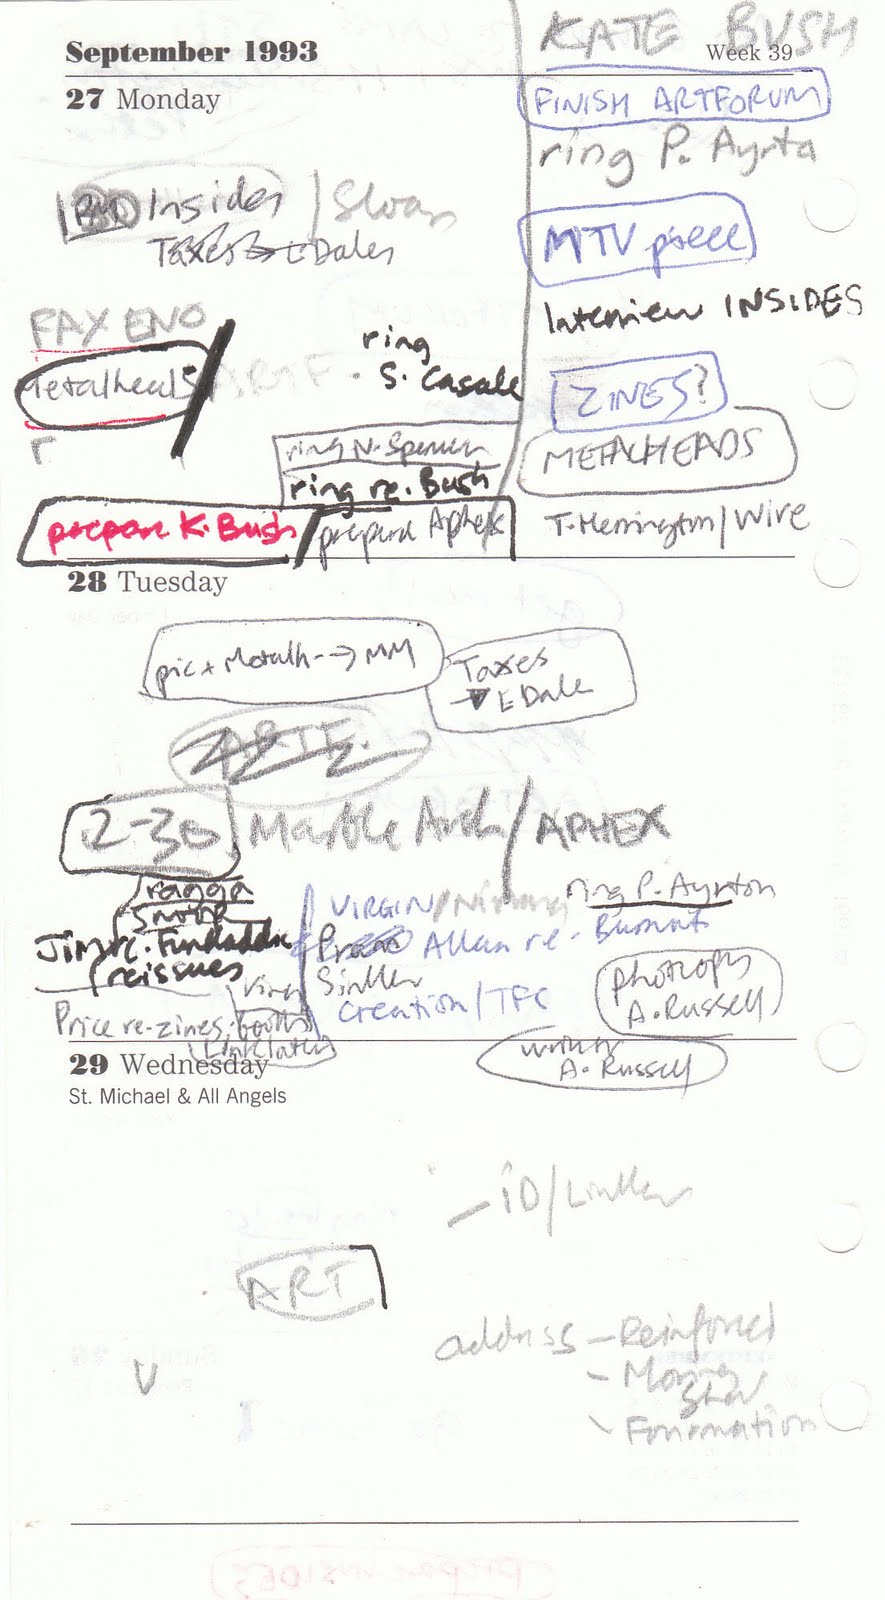 September 1993
Week 39
KATE BUSH
27 Monday
FINISH ARTFORUM
ring P. Ayrto
Insides / Sloan
Taxes → E Dales
MTV piece
Interview INSIDES
FAX ENO
ring
S. Casale
Metalheads
ARTF.
ZINES?
METALHEADS
ring N. Spencer
ring re. Bush
prepare K. Bush
prepare Aphex
T. Herrington / Wire
28 Tuesday
pic + Metalh --> MM
Taxes
E Dale
ARTF.
2-30 Marble Arch / APHEX
ragga
VIRGIN /
ring P. Ayrton
Jim re. Funkadelic
reissues
Allan re.
Sinker
Creation / TFC
photocopy
A. Russell
Price re-zines
Linklater
29 Wednesday
St. Michael & All Angels
A. Russell
iD /
ART
address – Reinforced
- Moving
Shadow
- Formation
V